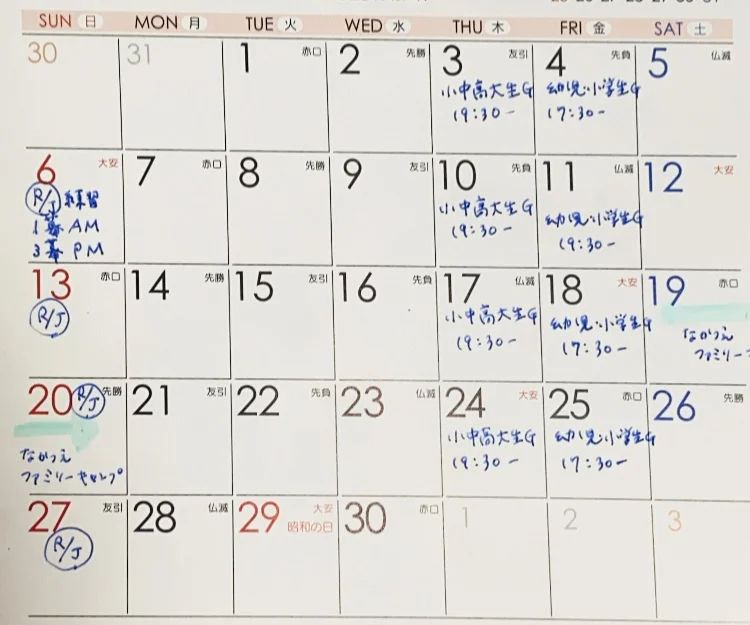 SUN 日 MON 月 TUE 火 WED 水 THU 木 FRI 金 SAT 土
30 31 1 赤口 2 先勝 3 友引 4 先負 5 仏滅
小中高大生G 幼児・小学生G
19:30- 17:30-
6 大安 7 赤口 8 先勝 9 友引 10 先負 11 仏滅 12 大安
R/J 練習 小中高大生G 幼児・小学生G
1幕 AM 19:30- 19:30-
3幕 PM
13 赤口 14 先勝 15 友引 16 先負 17 仏滅 18 大安 19 赤口
R/J 小中高大生G 幼児・小学生G なかつえ
19:30- 17:30- ファミリー
20 R/J 先勝 21 友引 22 先負 23 仏滅 24 大安 25 赤口 26 先勝
なかつえ 小中高大生G 幼児・小学生G
ファミリーキャンプ 19:30- 17:30-
27 友引 28 仏滅 29 大安 30 赤口 1 2 3
昭和の日
R/J